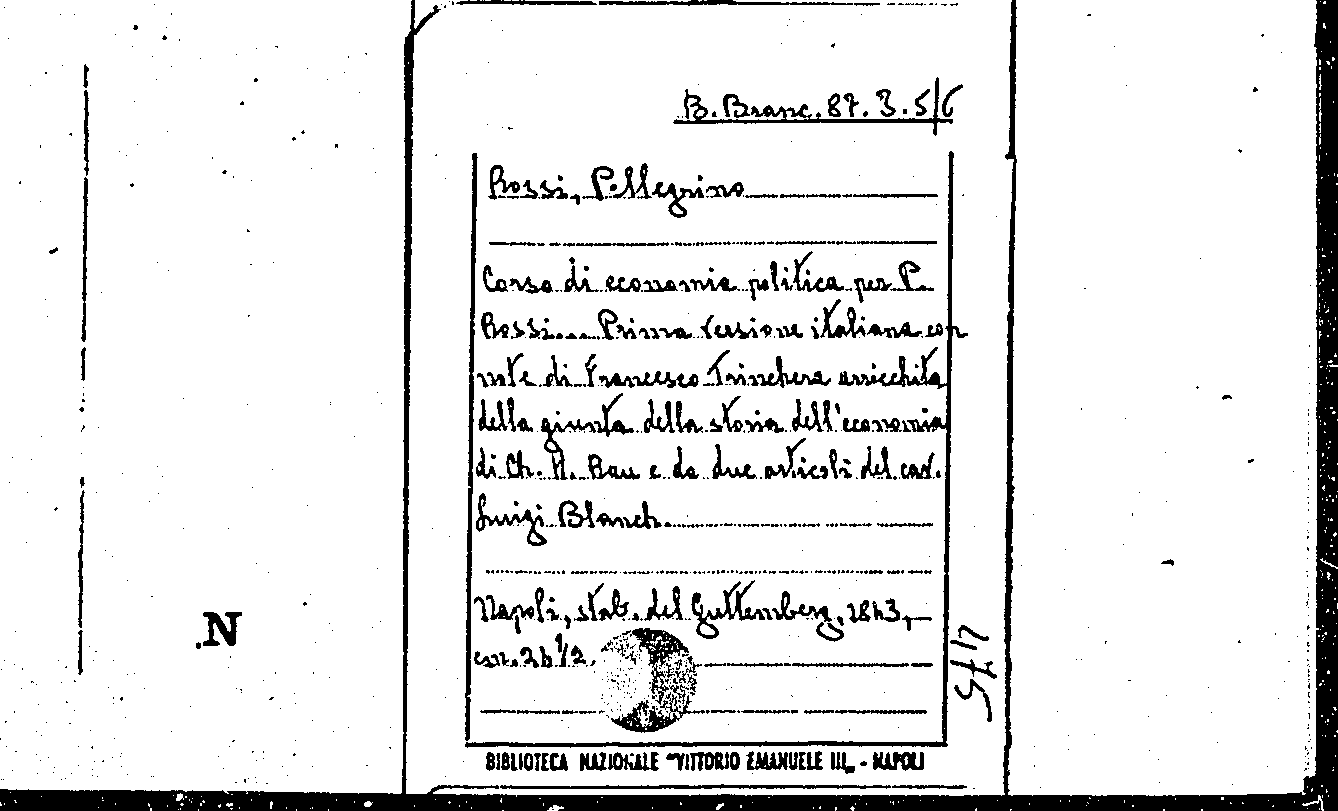 B. Branc. 87. 3. 5/6
Rossi, Pellegrino
Corso di economia politica per P.
Rossi... Prima versione italiana con
note di Francesco Trinchera arricchita
della giunta della storia dell'economia
di Ch. H. Rau e da due articoli del cav.
Luigi Blanch.
Napoli, stab. del Guttemberg, 1843,
cm. 24 1/2.
N
BIBLIOTECA NAZIONALE "VITTORIO EMANUELE III„ - NAPOLI